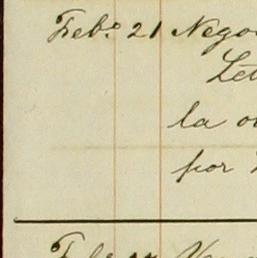 Feb.º 21 Nego
Let
la o
por